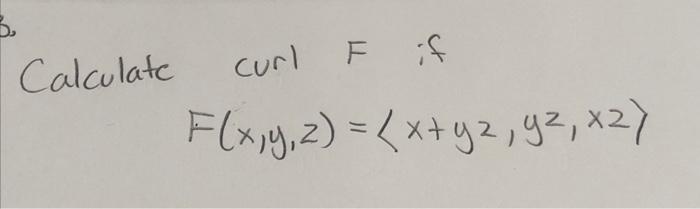 3.
Calculate curl F if
F(x,y,z) = ⟨x+yz, yz, xz⟩